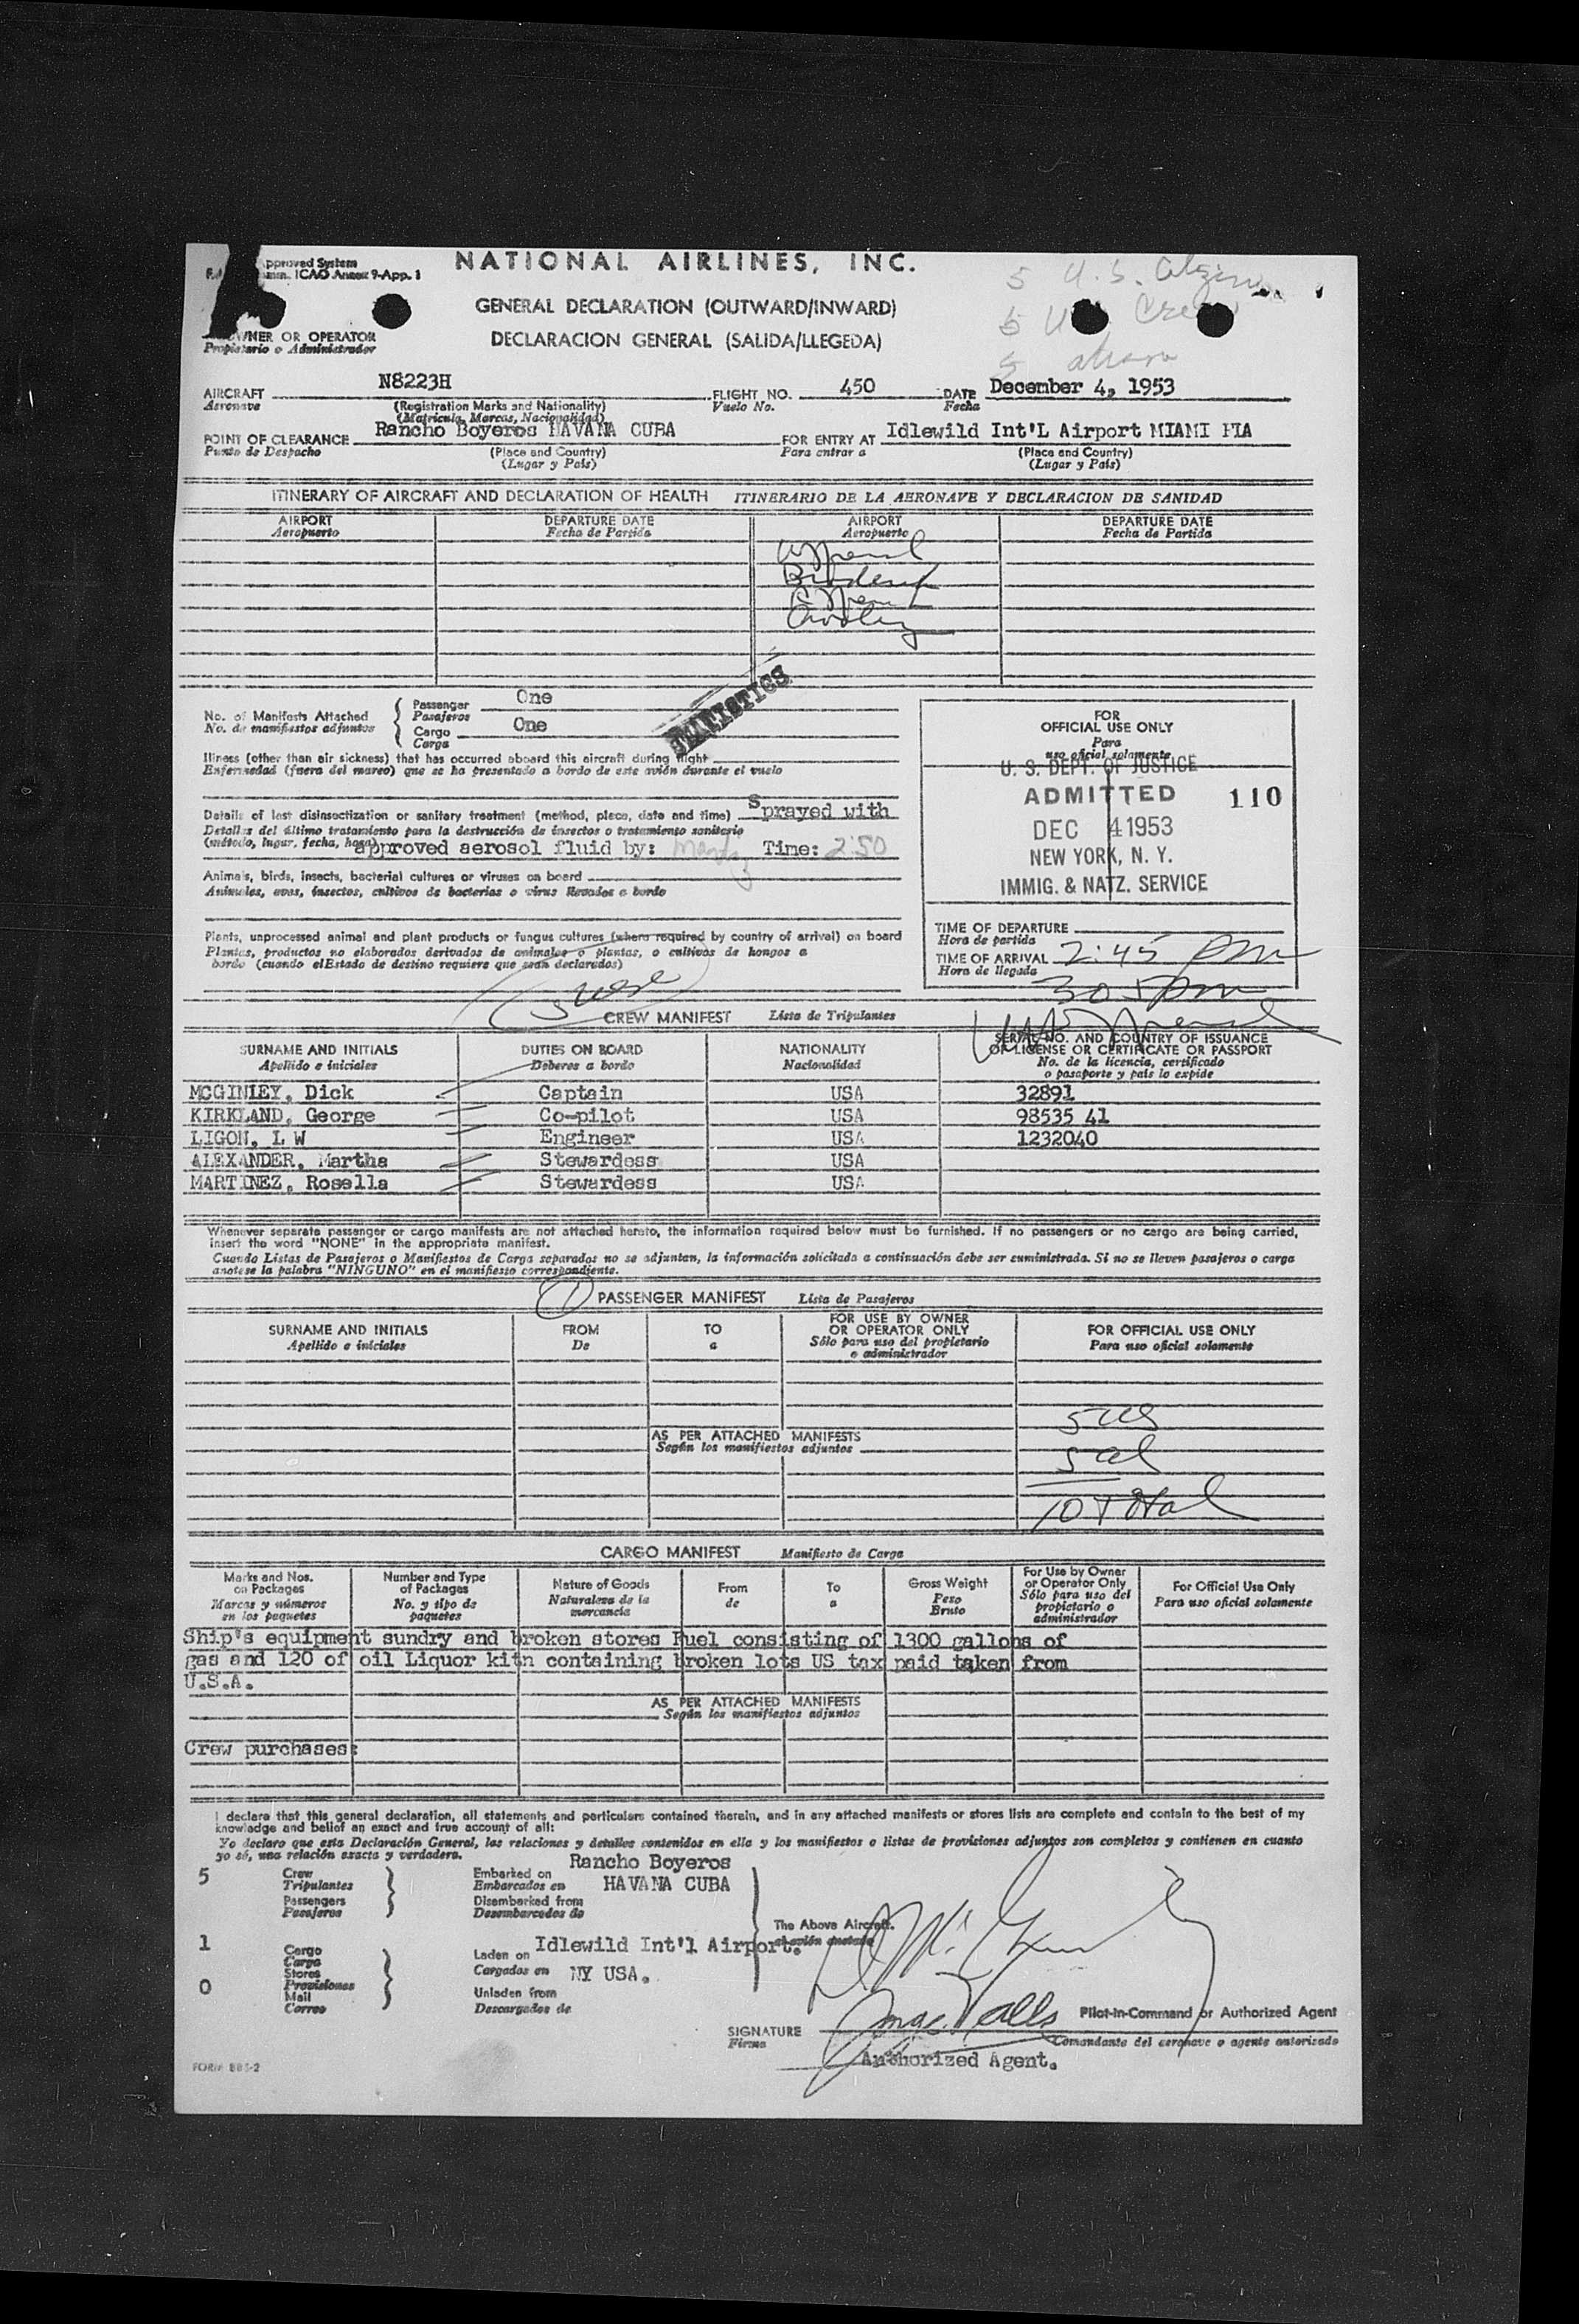 pproved System
mm. ICAO Annex 9-App. 1
NATIONAL AIRLINES, INC.
5 U.S. Citizens
GENERAL DECLARATION (OUTWARD/INWARD)
5 U Crew
DECLARACION GENERAL (SALIDA/LLEGEDA)
OWNER OR OPERATOR
Propietario o Administrador
5 aliens
AIRCRAFT N8223H FLIGHT NO. 450 DATE December 4, 1953
Aeronave (Registration Marks and Nationality) Vuelo No. Fecha
(Matricula, Marcas, Nacionalidad)
POINT OF CLEARANCE Rancho Boyeros HAVANA CUBA FOR ENTRY AT Idlewild Int'L Airport MIAMI FLA
Punto de Despacho (Place and Country) Para entrar a (Place and Country)
(Lugar y País) (Lugar y País)
ITINERARY OF AIRCRAFT AND DECLARATION OF HEALTH ITINERARIO DE LA AERONAVE Y DECLARACION DE SANIDAD
AIRPORT DEPARTURE DATE AIRPORT DEPARTURE DATE
Aeropuerto Fecha de Partida Aeropuerto Fecha de Partida
STATISTICS
No. of Manifests Attached Passenger One
No. de manifiestos adjuntos Pasajeros
Cargo One
Carga
Illness (other than air sickness) that has occurred aboard this aircraft during flight
Enfermedad (fuera del mareo) que se ha presentado a bordo de este avión durante el vuelo
Details of last disinsectization or sanitary treatment (method, place, date and time) Sprayed with
Detalles del último tratamiento para la destrucción de insectos o tratamiento sanitario
(método, lugar, fecha, hora) approved aerosol fluid by: Time: 2:50
Animals, birds, insects, bacterial cultures or viruses on board
Animales, aves, insectos, cultivos de bacterias o virus llevados a bordo
Plants, unprocessed animal and plant products or fungus cultures (where required by country of arrival) on board
Plantas, productos no elaborados derivados de animales o plantas, o cultivos de hongos a
bordo (cuando el Estado de destino requiere que sean declarados)
FOR
OFFICIAL USE ONLY
Para
uso oficial solamente
U. S. DEPT. OF JUSTICE
ADMITTED 110
DEC 4 1953
NEW YORK, N. Y.
IMMIG. & NATZ. SERVICE
TIME OF DEPARTURE
Hora de partida
TIME OF ARRIVAL 2:45 PM
Hora de llegada
305 pm
CREW MANIFEST Lista de Tripulantes
SURNAME AND INITIALS DUTIES ON BOARD NATIONALITY SERIAL NO. AND COUNTRY OF ISSUANCE
OF LICENSE OR CERTIFICATE OR PASSPORT
Apellido e iniciales Deberes a bordo Nacionalidad No. de la licencia, certificado
o pasaporte y país lo expide
MCGINLEY, Dick Captain USA 32891
KIRKLAND, George Co-pilot USA 98535 41
LIGON, L W Engineer USA 1232040
ALEXANDER, Martha Stewardess USA
MARTINEZ, Rosella Stewardess USA
Whenever separate passenger or cargo manifests are not attached hereto, the information required below must be furnished. If no passengers or no cargo are being carried,
insert the word "NONE" in the appropriate manifest.
Cuando Listas de Pasajeros o Manifiestos de Carga separados no se adjuntan, la información solicitada a continuación debe ser suministrada. Si no se lleven pasajeros o carga
anotese la palabra "NINGUNO" en el manifiesto correspondiente.
1 PASSENGER MANIFEST Lista de Pasajeros
SURNAME AND INITIALS FROM TO FOR USE BY OWNER
OR OPERATOR ONLY FOR OFFICIAL USE ONLY
Apellido e iniciales De a Sólo para uso del propietario
o administrador Para uso oficial solamente
5 US
AS PER ATTACHED MANIFESTS
Según los manifiestos adjuntos
5 al
10 total
CARGO MANIFEST Manifiesto de Carga
Marks and Nos.
on Packages
Marcas y números
en los paquetes
Number and Type
of Packages
No. y tipo de
paquetes
Nature of Goods
Naturaleza de la
mercancia
From
de
To
a
Gross Weight
Peso
Bruto
For Use by Owner
or Operator Only
Sólo para uso del
propietario o
administrador
For Official Use Only
Para uso oficial solamente
Ship's equipment sundry and broken stores Fuel consisting of 1300 gallons of
gas and 120 of oil Liquor kitn containing broken lots US tax paid taken from
U.S.A.
AS PER ATTACHED MANIFESTS
Según los manifiestos adjuntos
Crew purchases:
I declare that this general declaration, all statements and particulars contained therein, and in any attached manifests or stores lists are complete and contain to the best of my
knowledge and belief an exact and true account of all:
Yo declaro que esta Declaración General, las relaciones y detalles contenidos en ella y los manifiestos o listas de provisiones adjuntos son completos y contienen en cuanto
yo sé, una relación exacta y verdadera.
5 Crew Embarked on Rancho Boyeros
Tripulantes Embarcados en HAVANA CUBA
Passengers Disembarked from
Pasajeros Desembarcados de
The Above Aircraft.
1 Cargo Laden on Idlewild Int'l Airport.
Carga
Stores Cargados en NY USA.
0 Provisiones
Mail Unladen from
Correo Descargados de
Pilot-in-Command or Authorized Agent
SIGNATURE
Firma Comandante del aeronave o agente autorizado
Authorized Agent.
FORM 885-2